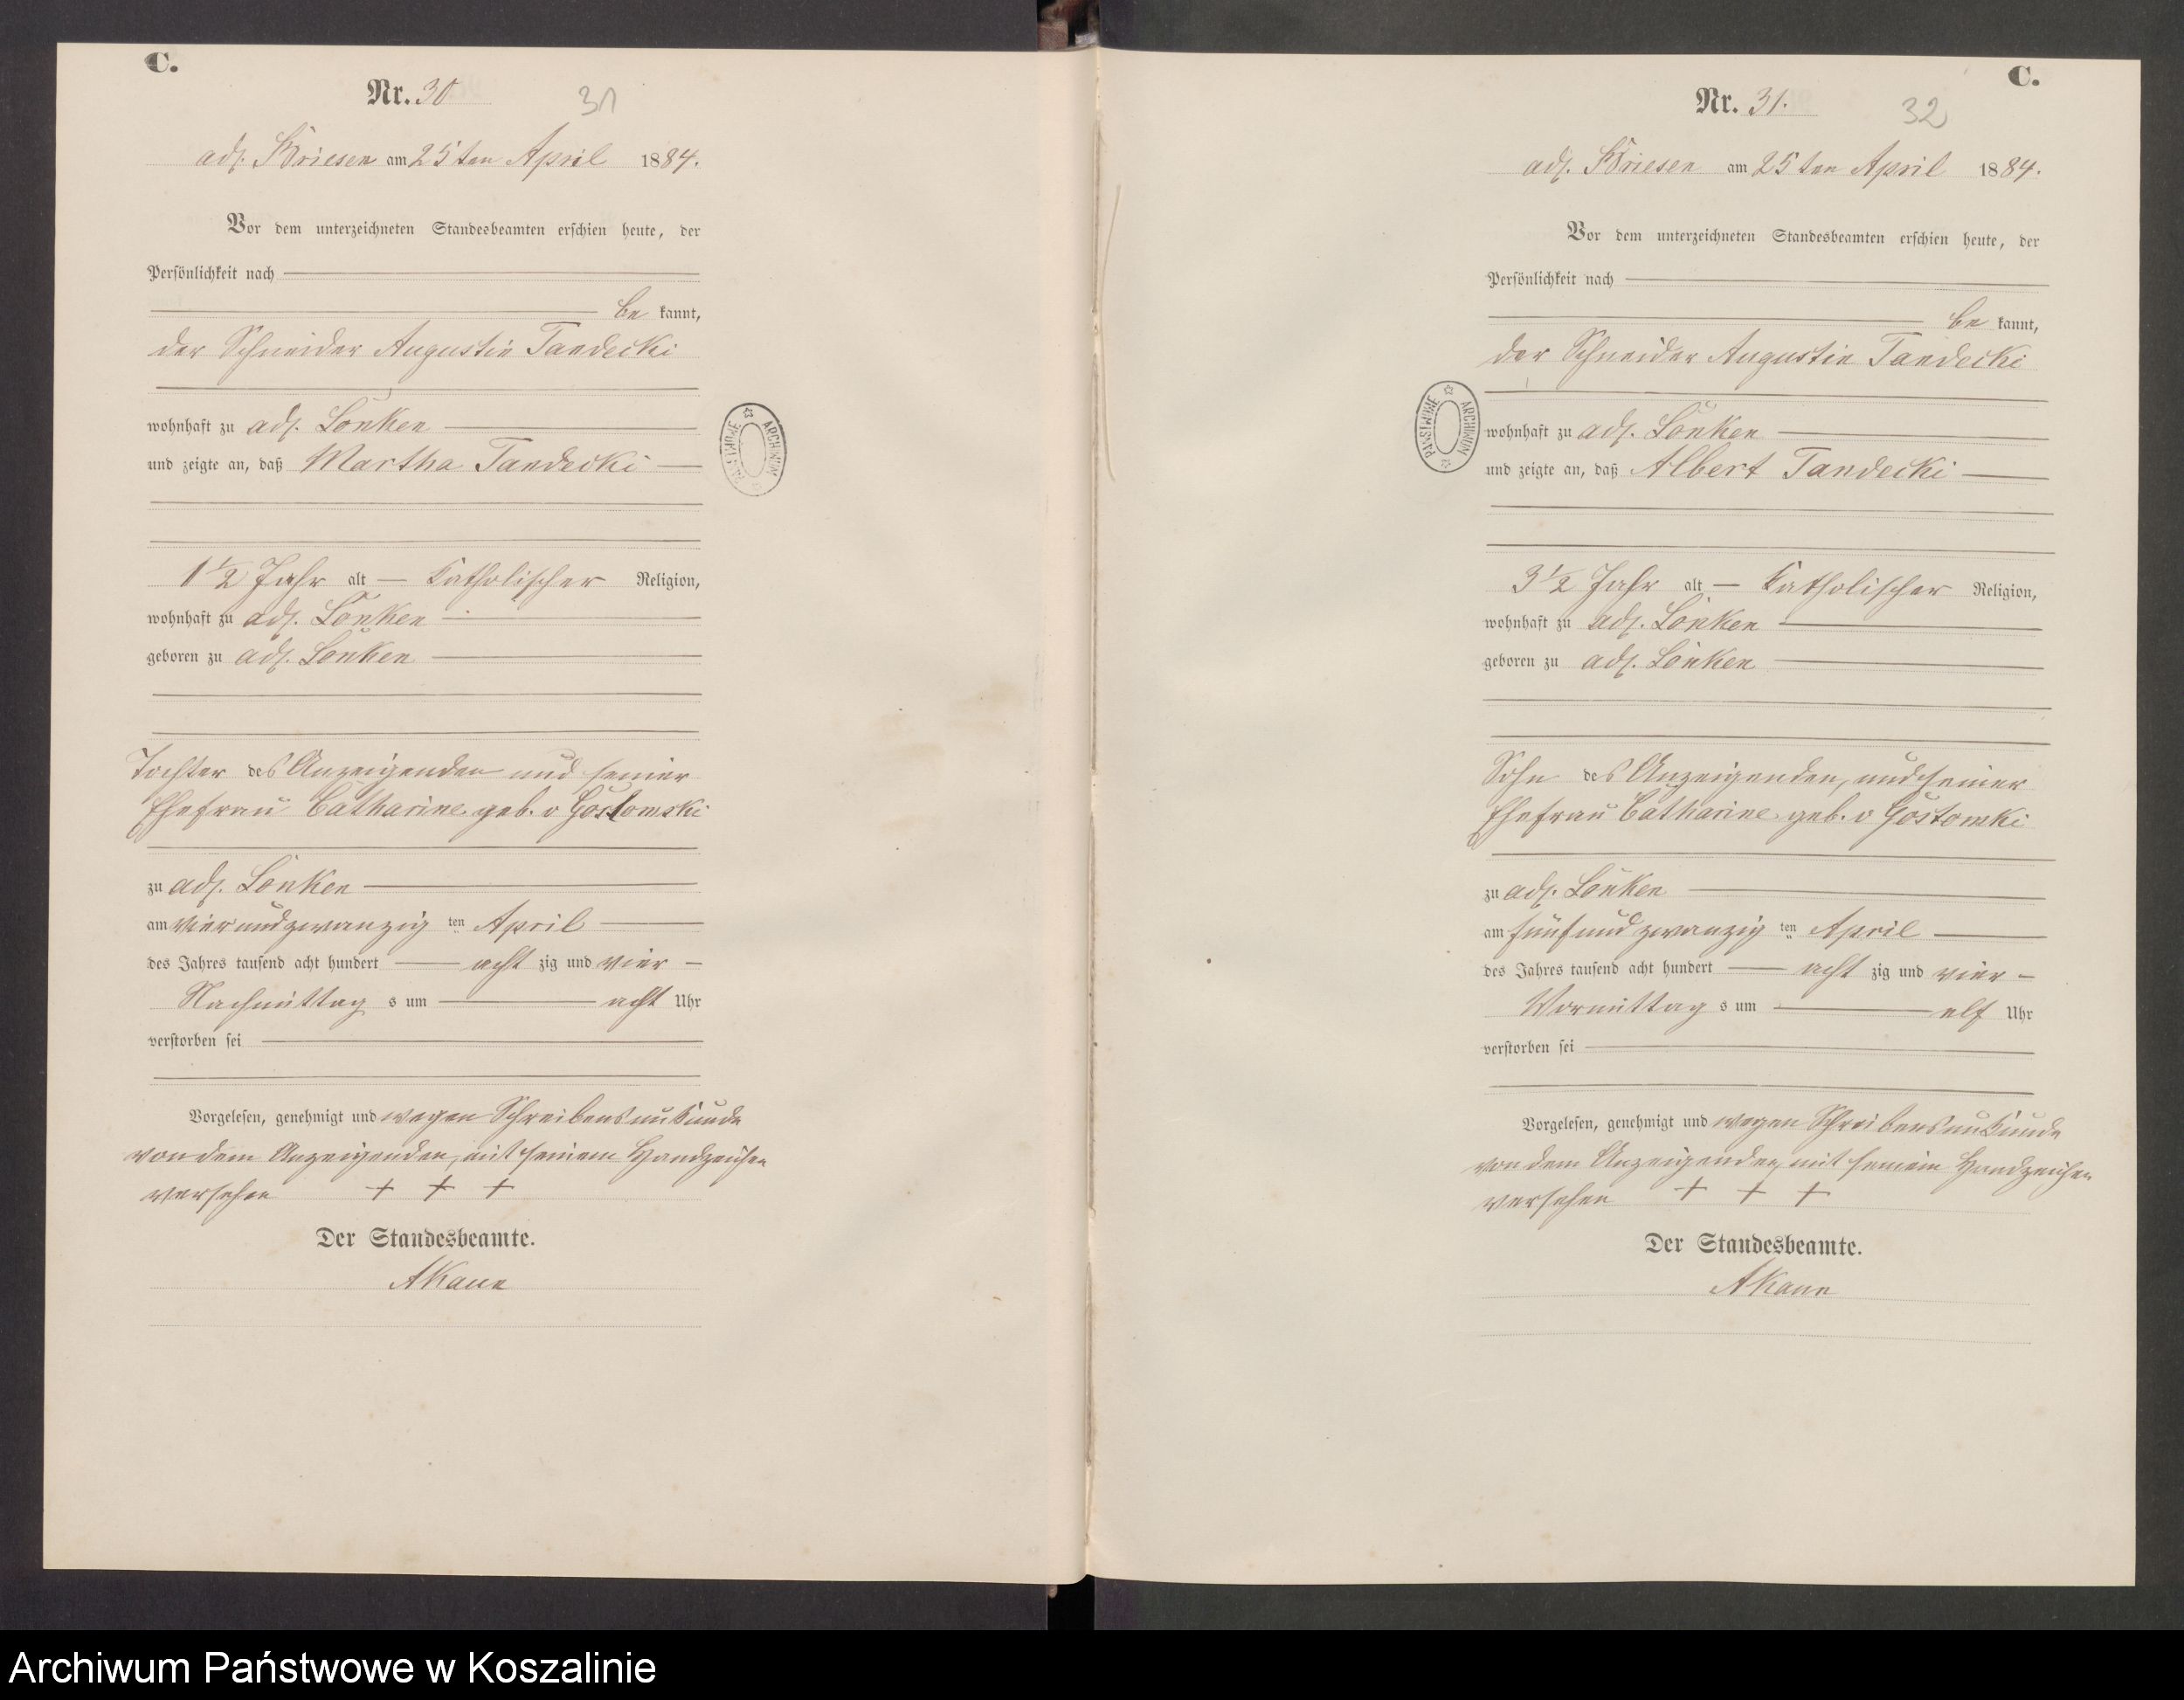 C.
Nr. 30
31
adl. Briesen am 25ten April 1884.
Vor dem unterzeichneten Standesbeamten erschien heute, der
Persönlichkeit nach
be kannt,
der Schneider Augustin Tandecki
wohnhaft zu adl. Lonken
und zeigte an, daß Martha Tandecki
1 1/2 Jahr alt — katholischer Religion,
wohnhaft zu adl. Lonken
geboren zu adl. Lonken
Tochter des Anzeigenden und seiner
Ehefrau Catharine geb. v Gostomski
zu adl. Lonken
am vierundzwanzig ten April
des Jahres tausend acht hundert — acht zig und vier —
Nachmittag s um — acht Uhr
verstorben sei
Vorgelesen, genehmigt und wegen Schreibensunkunde
von dem Anzeigenden, mit seinem Handzeichen
versehen + + +
Der Standesbeamte.
AKaun
ARCHIWUM PAŃSTWOWE
C.
Nr. 31.
32
adl. Briesen am 25ten April 1884.
Vor dem unterzeichneten Standesbeamten erschien heute, der
Persönlichkeit nach
be kannt,
der Schneider Augustin Tandecki
wohnhaft zu adl. Lonken
und zeigte an, daß Albert Tandecki
3 1/2 Jahr alt — katholischer Religion,
wohnhaft zu adl. Lonken
geboren zu adl. Lonken
Sohn des Anzeigenden, und seiner
Ehefrau Catharine geb. v Gostomki
zu adl. Lonken
am fünfundzwanzig ten April
des Jahres tausend acht hundert — acht zig und vier —
Vormittag s um — elf Uhr
verstorben sei
Vorgelesen, genehmigt und wegen Schreibensunkunde
von dem Anzeigenden, mit seinem Handzeichen
versehen + + +
Der Standesbeamte.
AKaun
ARCHIWUM PAŃSTWOWE
Archiwum Państwowe w Koszalinie